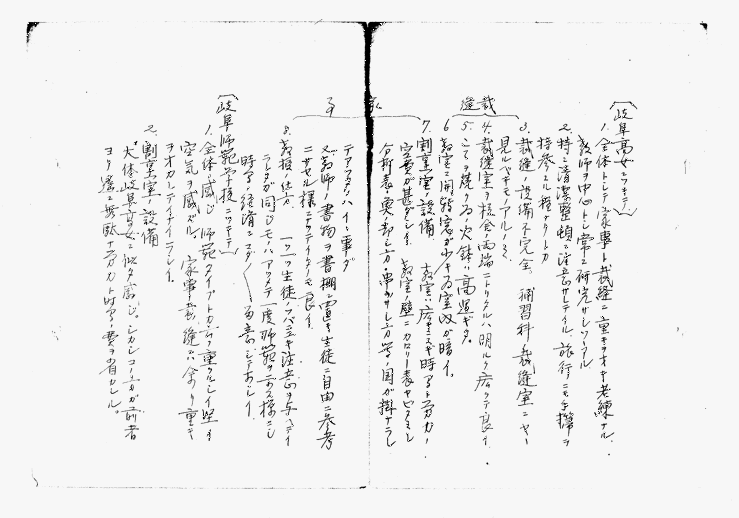 （岐阜高女ニツキテ）
1. 全体トシテ家事ト裁縫ニ重キヲオキ老練ナル
教師ヲ中心トシ常ニ研究サレツヽアル
2. 特ニ清潔整頓ニ注意サレテル 旅行ニモ手掃ヲ
持参スル程ナリトカ
3. 裁縫ノ設備不完全 補習科裁縫室ニヤヽ
見ルベキモノアルノミ
裁縫
4. 裁縫室ヲ校舎ノ両端ニトリタルハ明ルク広クテ良イ.
5. こてヲ焼ク為ノ火鉢ハ高過ギタ.
6 教室ニ開放窓ガ少キ為室内ガ暗イ.
家事
7. 割烹室ノ設備 教室ハ広キニスギ時間ト労力ノ
空費ガ甚ダシイ 教室ノ壁ニカロリー表ヤビタミン
分析表、魚ノ卸シ方、串ノサシ方等ノ図ガ掛ケラレ
テアツタノハイヽ事ダ
又教師ノ書物ヲ書棚ニ置キ生徒ニ自由ニ参考
ニサセル様ニナツテイタノモ良イ.
8. 教授ノ仕方 一ツ一ツ生徒ノソバニテ注意ヲ与ヘテイ
ラレタガ同ジモノハアツメテ一度ニ
時間ノ経済ニマダ〱留意シテホシイ.
（岐阜師範学校ニツキテ）
1. 全体ノ感じ 師範タイプトカデ重クルシイ堅イ
空気ヲ感ズル. 家事裁縫ニハ余リ重キ
ヲオカレテイナイラシイ.
2. 割烹室ノ設備
大体岐阜高女ト似タ感じ、シカシコノ方ガ前者
ヨリ遥ニ無駄ナ労力ト時間ノ費ヲ省カレル。